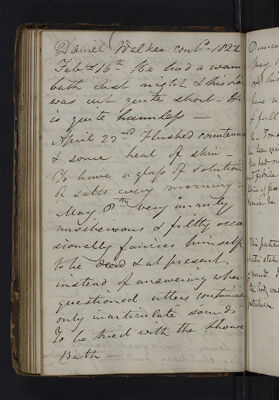 Daniel Walker cont. 1822
Feb 16th He had a warm
bath last night & his hair
was cut quite short - He
is quite harmless -
April 22nd Flushed countenance
& some heat of skin -
To have a glass of solution
of salts every morning -
May 8th Very unruly
mischievous & filthy occa
sionally fancies himself
to be dead & at present
instead of answering when
questioned utters continual
only inarticulate sounds
To be tried with the shower
Bath -